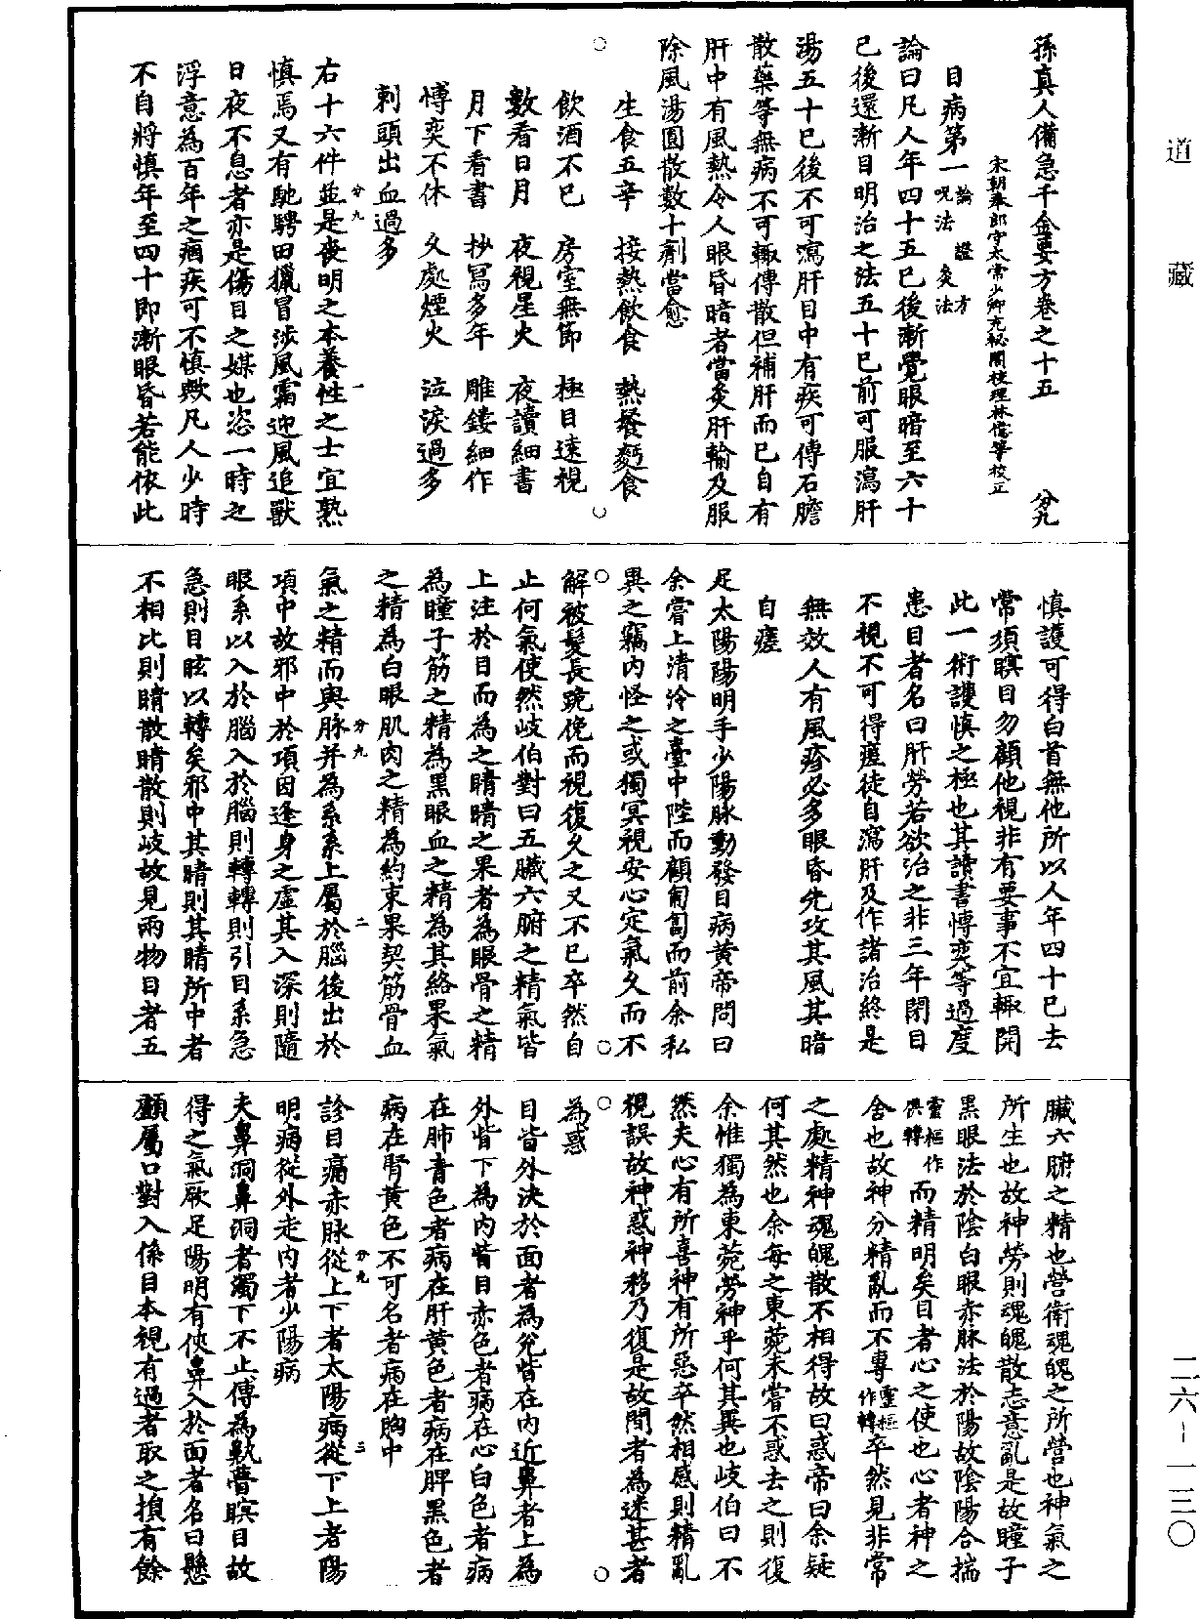 孫真人備急千金要方卷之十五　分九
宋朝奉郎守太常少卿充秘閣校理林億等校正
目病第一論　證　方
呪法　灸法
論曰凡人年四十五已後漸覺眼暗至六十
已後還漸目明治之法五十已前可服瀉肝
湯五十已後不可瀉肝目中有疾可傅石膽
散藥等無病不可輙傅散但補肝而已自有
肝中有風熱令人眼昏暗者當灸肝輸及服
除風湯圓散數十劑當愈
生食五辛　接熱飲食　熱餐麪食
飲酒不已　房室無節　極目遠視
數看日月　夜視星火　夜讀細書
月下看書　抄寫多年　雕鏤細作
博奕不休　久處煙火　泣淚過多
刺頭出血過多
右十六件並是喪明之本養性之士宜熟
分九　一
慎焉又有馳騁田獵冒涉風霜迎風追獸
日夜不息者亦是傷目之媒也恣一時之
浮意為百年之痼疾可不慎歟凡人少時
不自將慎年至四十即漸眼昏若能依此
慎護可得白首無他所以人年四十已去
常須瞑目勿顧他視非有要事不宜輙開
此一術護慎之極也其讀書博奕等過度
患目者名曰肝勞若欲治之非三年閉目
不視不可得瘥徒自瀉肝及作諸治終是
無效人有風疹必多眼昏先攻其風其暗
自瘥
足太陽陽明手少陽脉動發目病黃帝問曰
余嘗上清泠之臺中陛而顧匍匐而前余私
異之竊內怪之或獨冥視安心定氣久而不
解被髮長跪俛而視復久之又不已卒然自
止何氣使然岐伯對曰五臟六腑之精氣皆
上注於目而為之睛睛之果者為眼骨之精
為瞳子筋之精為黑眼血之精為其絡果氣
之精為白眼肌肉之精為約束果契筋骨血
氣之精而與脉并為系系上屬於腦後出於
分九　二
項中故邪中於項因逢身之虛其入深則隨
眼系以入於腦入於腦則轉轉則引目系急
急則目眩以轉矣邪中其睛則其睛所中者
不相比則睛散睛散則岐故見兩物目者五
臟六腑之精也營衛魂魄之所營也神氣之
所生也故神勞則魂魄散志意亂是故瞳子
黑眼法於陰白眼赤脉法於陽故陰陽合揣
靈樞作俱轉而精明矣目者心之使也心者神之
舍也故神分精亂而不專靈樞作轉卒然見非常
之處精神魂魄散不相得故曰惑帝曰余疑
何其然也余每之東菀未嘗不惑去之則復
余惟獨為東菀勞神乎何其異也岐伯曰不
然夫心有所喜神有所惡卒然相感則精亂
視誤故神惑神移乃復是故間者為迷甚者
為惑
目眥外決於面者為兌眥在內近鼻者上為
外眥下為內眥目赤色者病在心白色者病
在肺青色者病在肝黃色者病在脾黑色者
病在腎黃色不可名者病在胸中
診目痛赤脉從上下者太陽病從下上者陽
分九　三
明病從外走內者少陽病
夫鼻洞鼻洞者濁下不止傳為鼽瞢瞑目故
得之氣厥足陽明有俠鼻入於面者名曰懸
顱屬口對入係目本視有過者取之損有餘
道藏
二六－一三〇